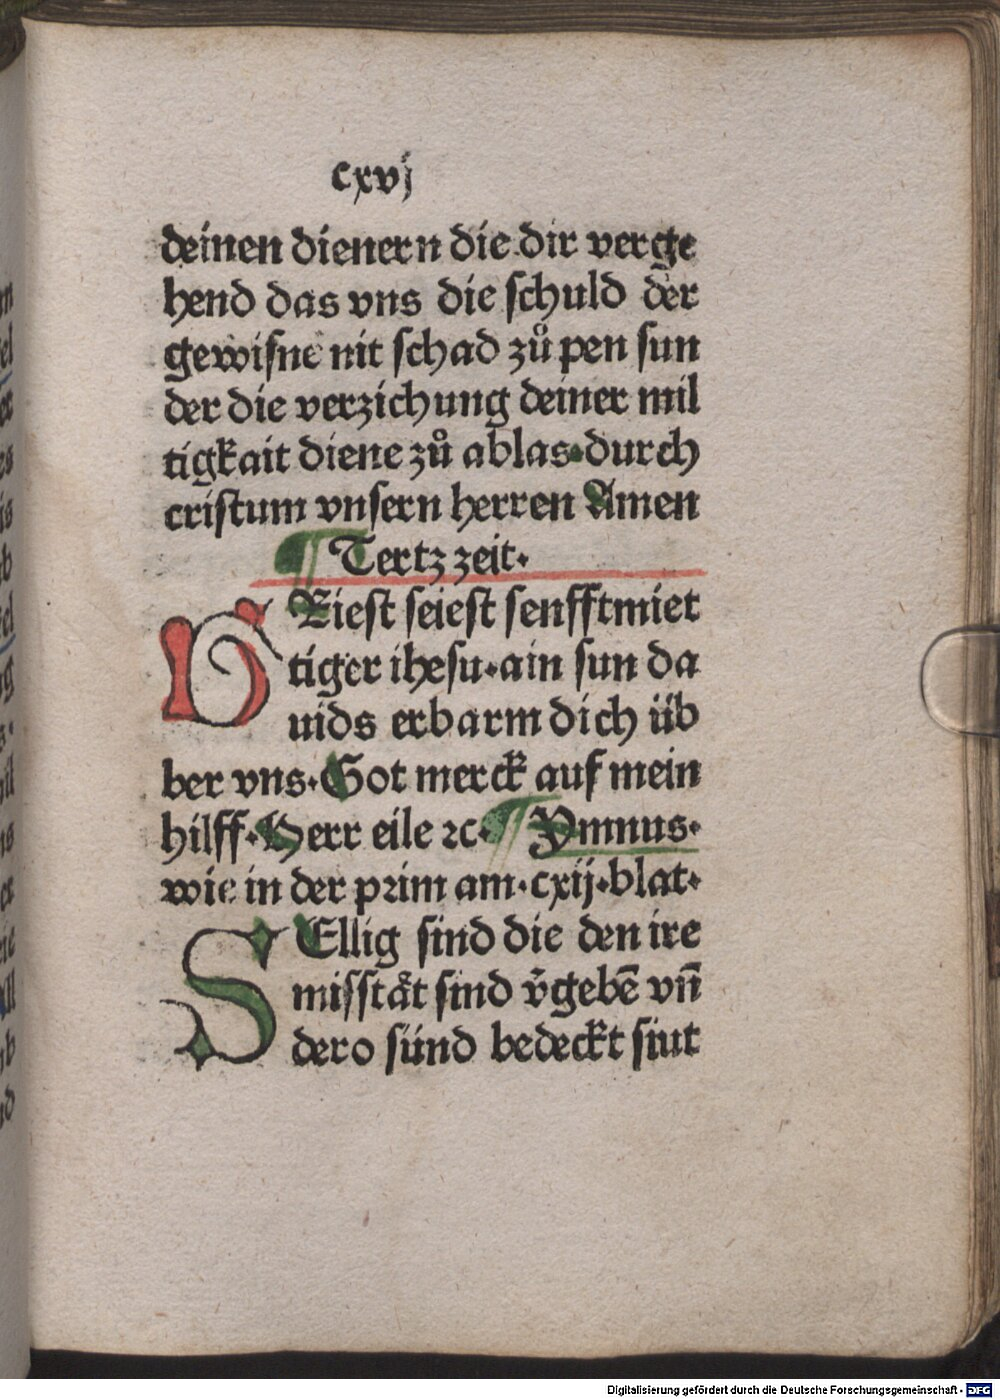 cxvj
deinen dienern die dir verge
hend das vns die schuld der
gewisne nit schad zů pen sun
der die verzichung deiner mil
tigkait diene zů ablas·durch
cristum vnsern herren Amen
¶ Tertz zeit·
DViest seiest senfftmiet
tiger ihesu·ain sun da
uids erbarm dich üb
ber vns·Got merck auf mein
hilff·Herr eile ⁊c·¶ Ymnus·
wie in der prim am·cxij·blat·
SEllig sind die den ire
misståt sind v̄gebē vn̄
dero sünd bedeckt sint
Digitalisierung gefördert durch die Deutsche Forschungsgemeinschaft - DFG